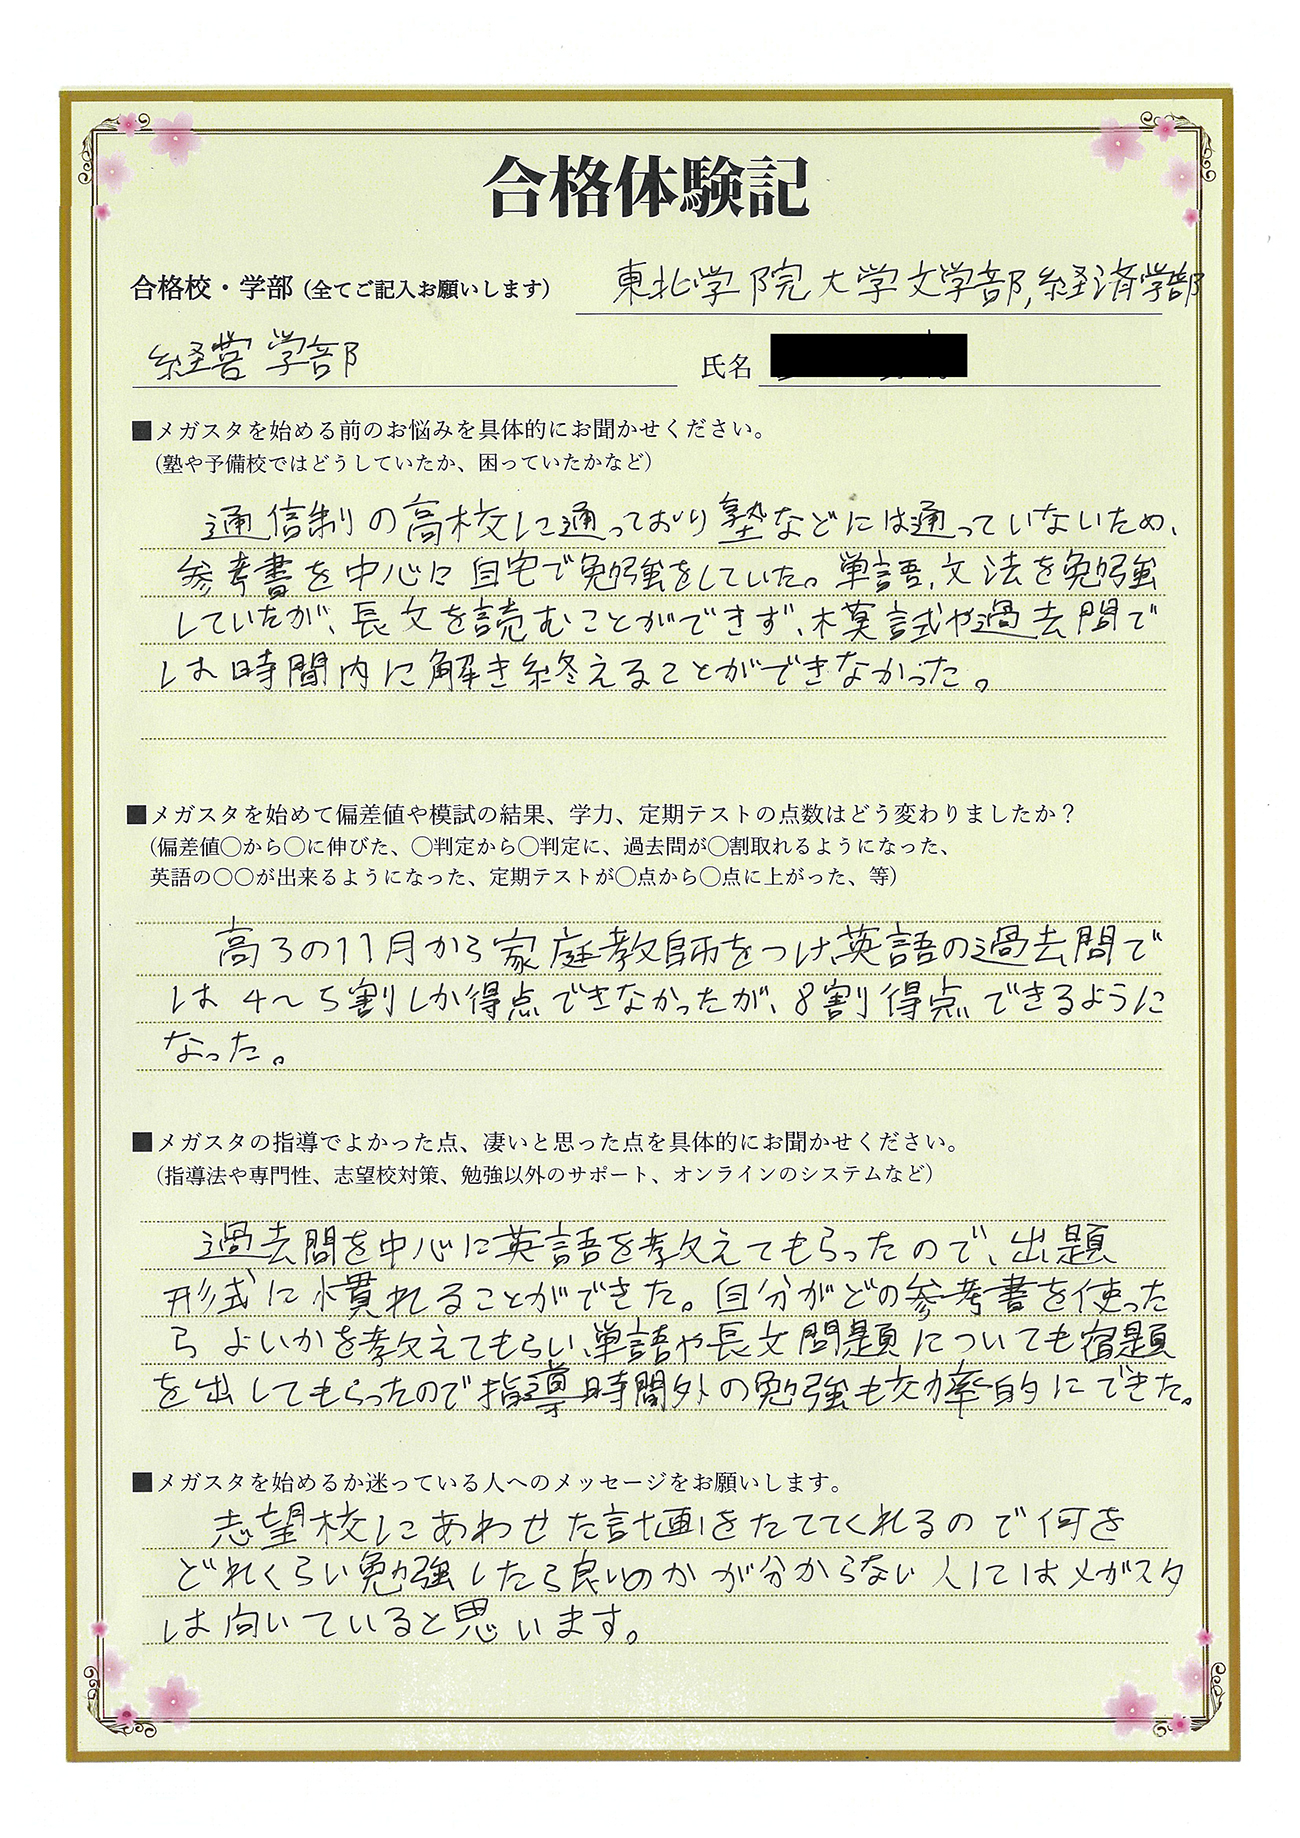 合格体験記
合格校・学部（全てご記入お願いします） 東北学院大学文学部,経済学部
経営学部 氏名
■メガスタを始める前のお悩みを具体的にお聞かせください。
（塾や予備校ではどうしていたか、困っていたかなど）
通信制の高校に通っており塾などには通っていないため、
参考書を中心に自宅で勉強をしていた。単語,文法を勉強
していたが、長文を読むことができず、模試や過去問で
は時間内に解き終えることができなかった。
■メガスタを始めて偏差値や模試の結果、学力、定期テストの点数はどう変わりましたか？
（偏差値〇から〇に伸びた、〇判定から〇判定に、過去問が〇割取れるようになった、
英語の〇〇が出来るようになった、定期テストが〇点から〇点に上がった、等）
高3の11月から家庭教師をつけ、英語の過去問で
は4～5割しか得点できなかったが、8割得点できるように
なった。
■メガスタの指導でよかった点、凄いと思った点を具体的にお聞かせください。
（指導法や専門性、志望校対策、勉強以外のサポート、オンラインのシステムなど）
過去問を中心に英語を教えてもらったので、出題
形式に慣れることができた。自分がどの参考書を使った
らよいかを教えてもらい、単語や長文問題についても宿題
を出してもらったので指導時間外の勉強も効率的にできた。
■メガスタを始めるか迷っている人へのメッセージをお願いします。
志望校にあわせた計画をたててくれるので何を
どれくらい勉強したら良いのかが分からない人にはメガスタ
は向いていると思います。